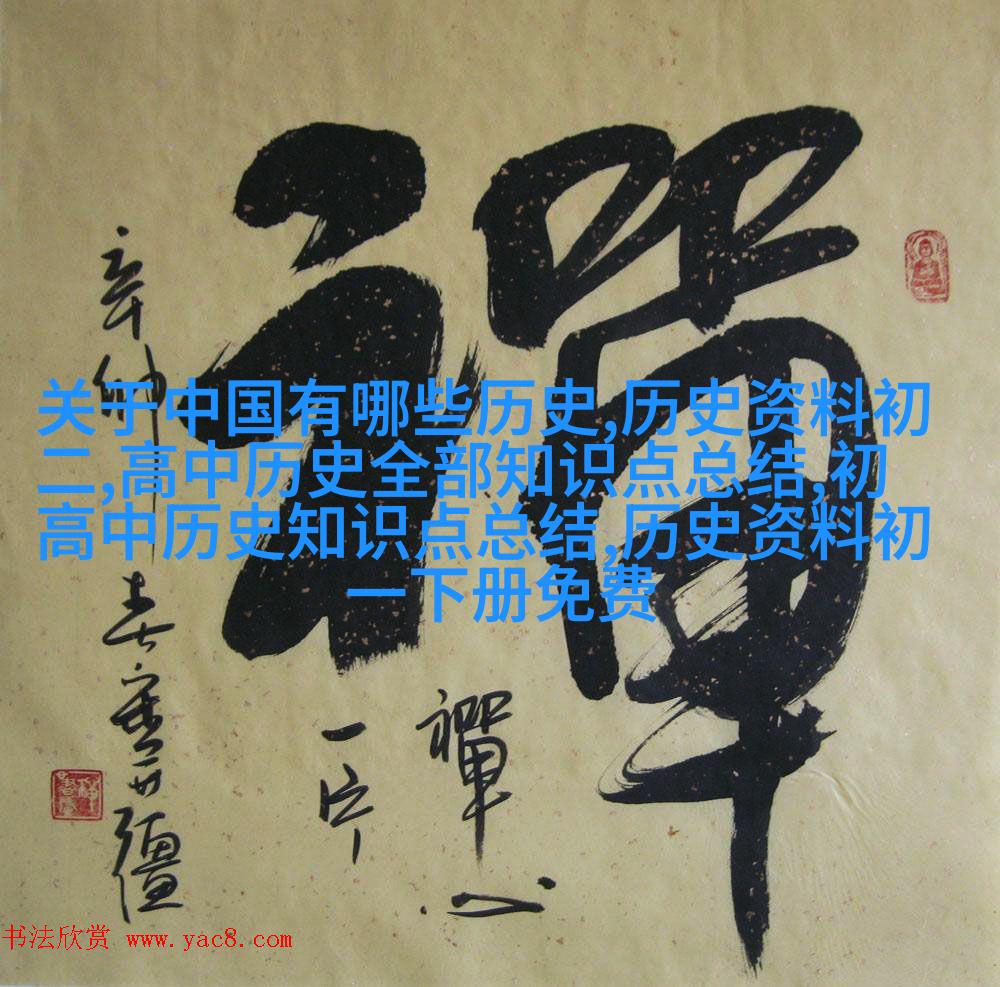 禪
禪心
一片
关于中国有哪些历史,历史资料初
二,高中历史全部知识点总结,初
高中历史知识点总结,历史资料初
一下册免费
书法欣赏 www.yac8.com